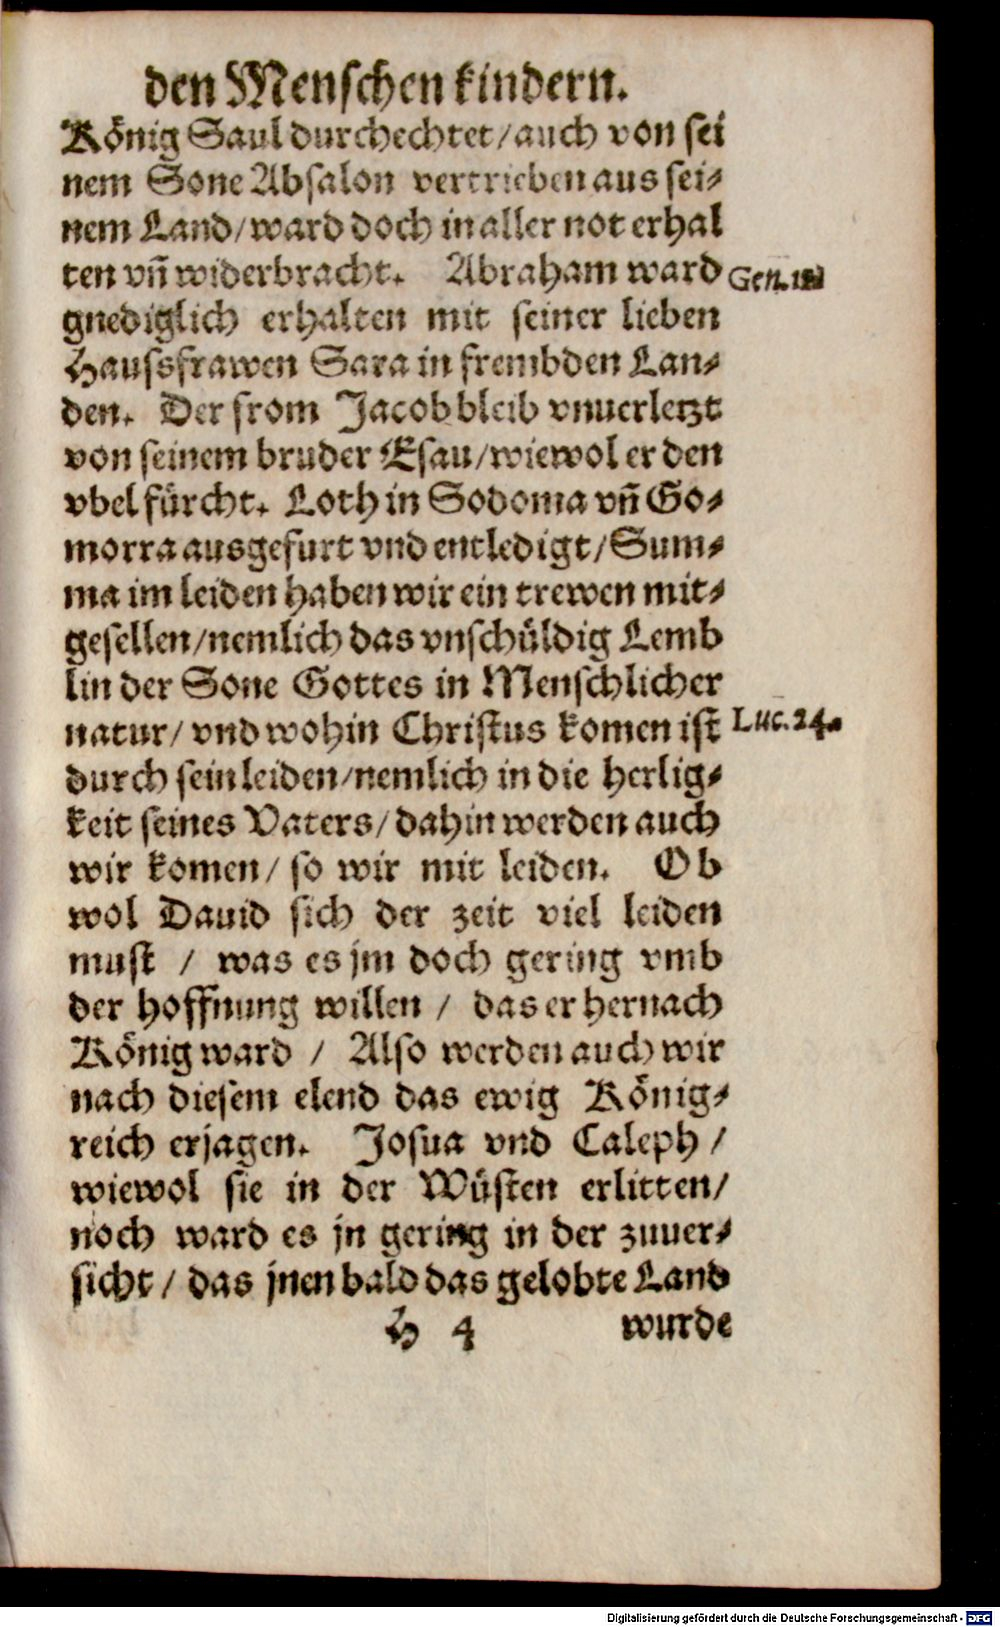 den Menschen kindern.
König Saul durchechtet/auch von sei
nem Sone Absalon vertrieben aus sei-
nem Land/ward doch in aller not erhal
ten vñ widerbracht. Abraham ward
Gen.
gnediglich erhalten mit seiner lieben
Haussfrawen Sara in frembden Lan-
den. Der from Jacob bleib vnuerletzt
von seinem bruder Esau/wiewol er den
vbel fürcht. Loth in Sodoma vñ Go-
morra ausgefurt vnd entledigt/Sum-
ma im leiden haben wir ein trewen mit-
gesellen/nemlich das vnschüldig Lemb
lin der Sone Gottes in Menschlicher
natur/ vnd wohin Christus komen ist
Luc.24.
durch sein leiden/nemlich in die herlig-
keit seines Vaters/dahin werden auch
wir komen/ so wir mit leiden. Ob
wol Dauid sich der zeit viel leiden
must / was es jm doch gering vmb
der hoffnung willen / das er hernach
König ward / Also werden auch wir
nach diesem elend das ewig König-
reich erjagen. Josua vnd Caleph /
wiewol sie in der Wüsten erlitten/
noch ward es jn gering in der zuuer-
sicht / das jnen bald das gelobte Land
H 4 wurde
Digitalisierung gefördert durch die Deutsche Forschungsgemeinschaft - DFG